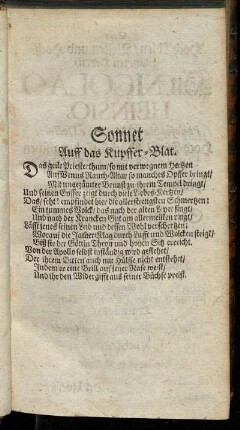 Sonnet
Auff das Kupffer-Blat.
Das geile Priesterthum / so mit verwegnem Hertzen
Auff Venus Rauch-Altar so manches Opffer bringt /
Mit ungezäunter Brunst zu ihrem Tempel dringt /
Und seinen Eyffer zeigt durch viele Liebes-Kertzen /
Das / seht! empfindet hier die allerstrengsten Schmertzen:
Ein tummes Volck / das nach der alten Leyer singt /
Und nach der Krancken Gut am allermeisten ringt /
Läst jenes seinen Leid und dessen Wohl verschertzen;
Worauf die Zauber-Magd durch Lufft und Wolcken steigt /
Biß sie der Göttin Thron und hohen Sitz erreicht.
Von der Apollo selbst inständig wird geflehet /
Der ihrem Bitten auch mit Hülffe nicht entstehet /
Indem er eine Brill auff seine Nase weist /
Und ihr den Widergifft aus seiner Büchse weist.